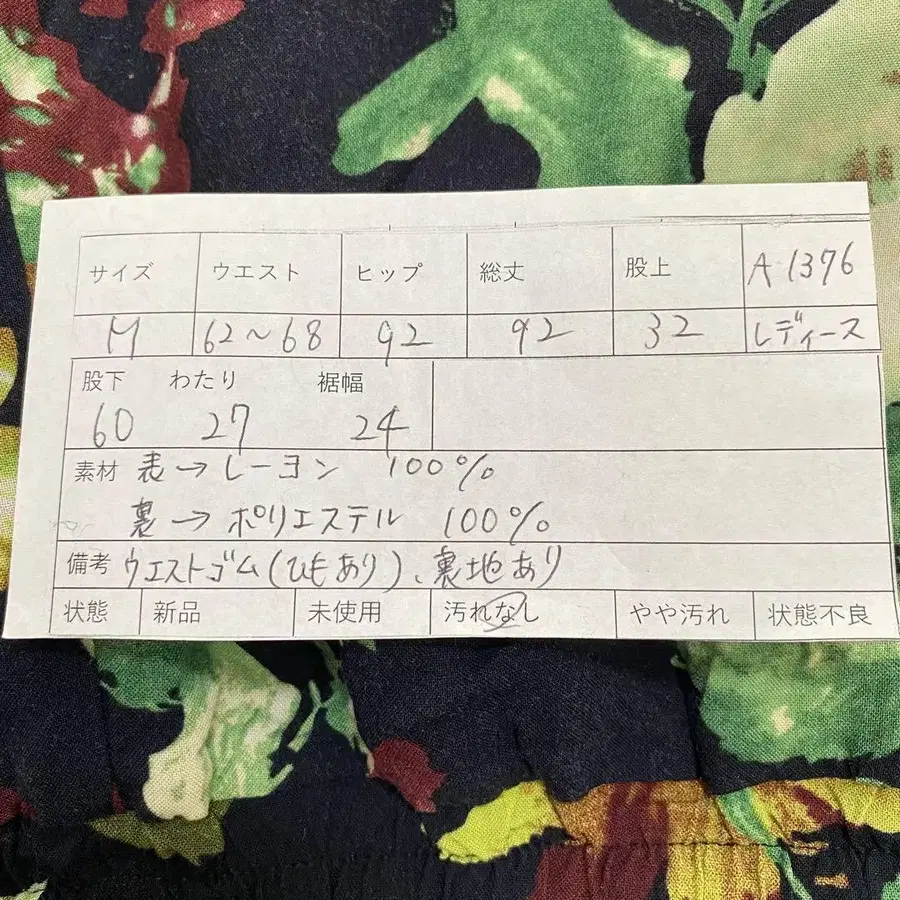 サイズ ウエスト ヒップ 総丈 股上 A1376
M 62～68 92 92 32 レディース
股下 わたり 裾幅
60 27 24
素材 表→レーヨン 100%
裏→ポリエステル 100%
備考 ウエストゴム(ひもあり)、裏地あり
状態 新品 未使用 汚れなし やや汚れ 状態不良